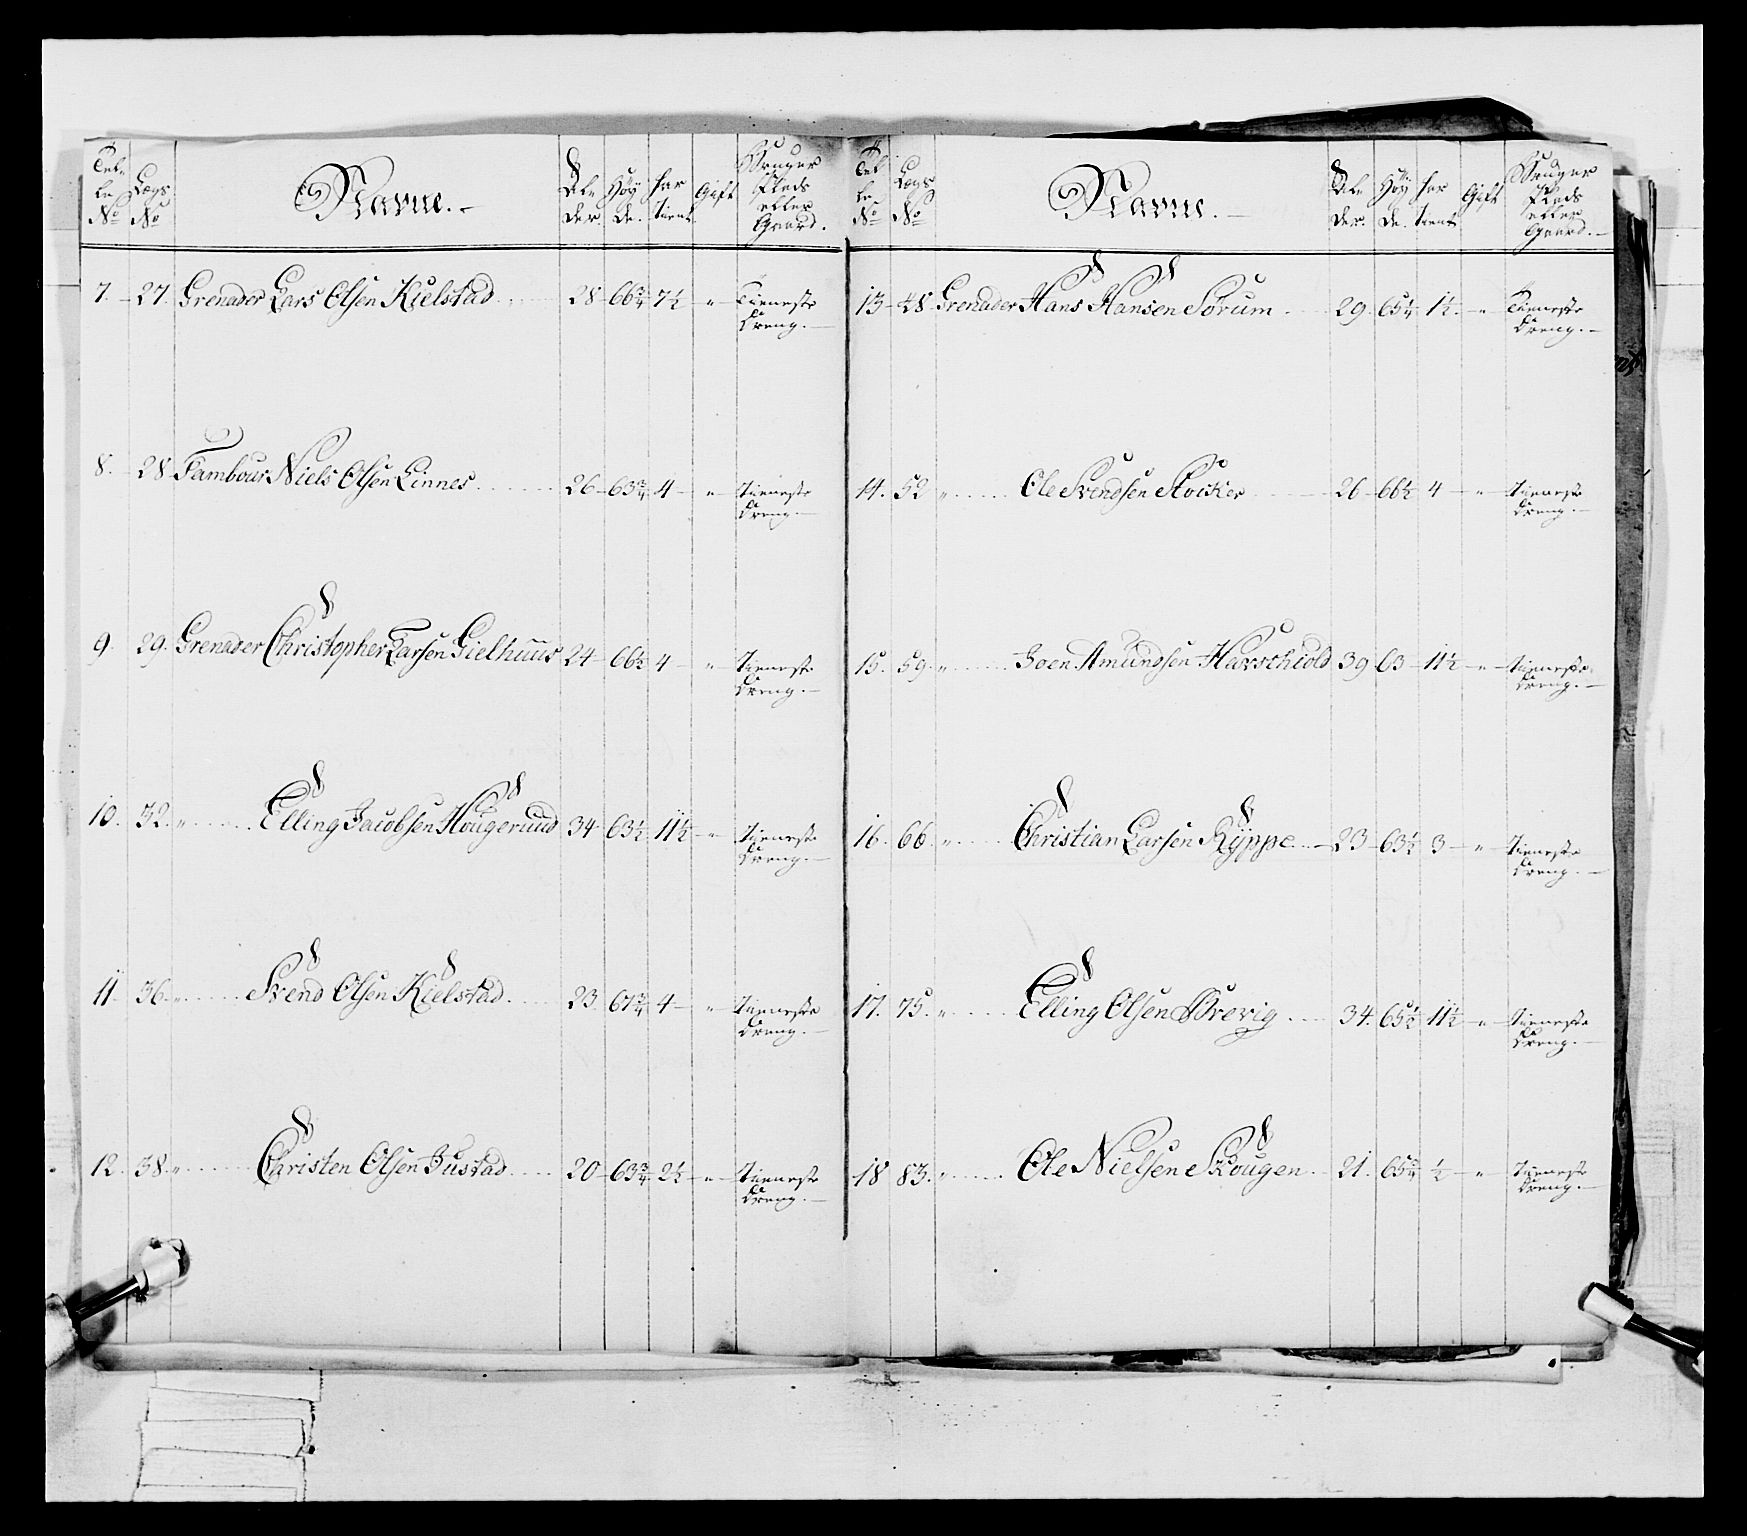 Tel- Lægs Navne. Al- Høy har Gift Bruger
le No der. de. tient Pleds
No eller
Gaard.
7. 27. Grenader Lars Olsen Kielstad 28 66 3/4 7 1/2 " Tieneste
Dreng.
8. 28 Tambour Niels Olsen Linnes 26 63 3/4 4 " Tieneste
Dreng.
9. 29. Grenader Christopher Larsen Gielhuus 24 66 1/2 4 " Tieneste
Dreng.
10. 32. " Elling Jacobsen Hougerund 34 63 1/2 11 1/2 " Tieneste
Dreng.
11. 36. " Svend Olsen Kielstad. 23 67 3/4 4 " Tieneste
Dreng.
12. 38. " Christen Olsen Justad 20 63 3/4 2 1/2 " Tieneste
Dreng.
Tel Lægs Navne. Al- Høy har Gift Bruger
le No der. de. tient Pleds
No eller
Gaard.
13 48 Grenader Hans Hansen Sørum 29. 65 1/4 1 1/2 " Tieneste
Dreng.
14. 52 " Ole Svendsen Stocker 26 66 1/2 4 " Tieneste
Dreng.
15. 59. " Joen Amundsen Harschiold 39 63 11 1/2 " Tieneste
Dreng.
16. 66. " Christian Larsen Kÿppe 23 63 1/2 3 " Tieneste
Dreng.
17. 75. " Elling Olsen Brevig 34. 65 1/2 11 1/2 " Tieneste
Dreng.
18 83. " Ole Nielsen Skougen. 21. 65 3/4 1/2 " Tieneste
Dreng.